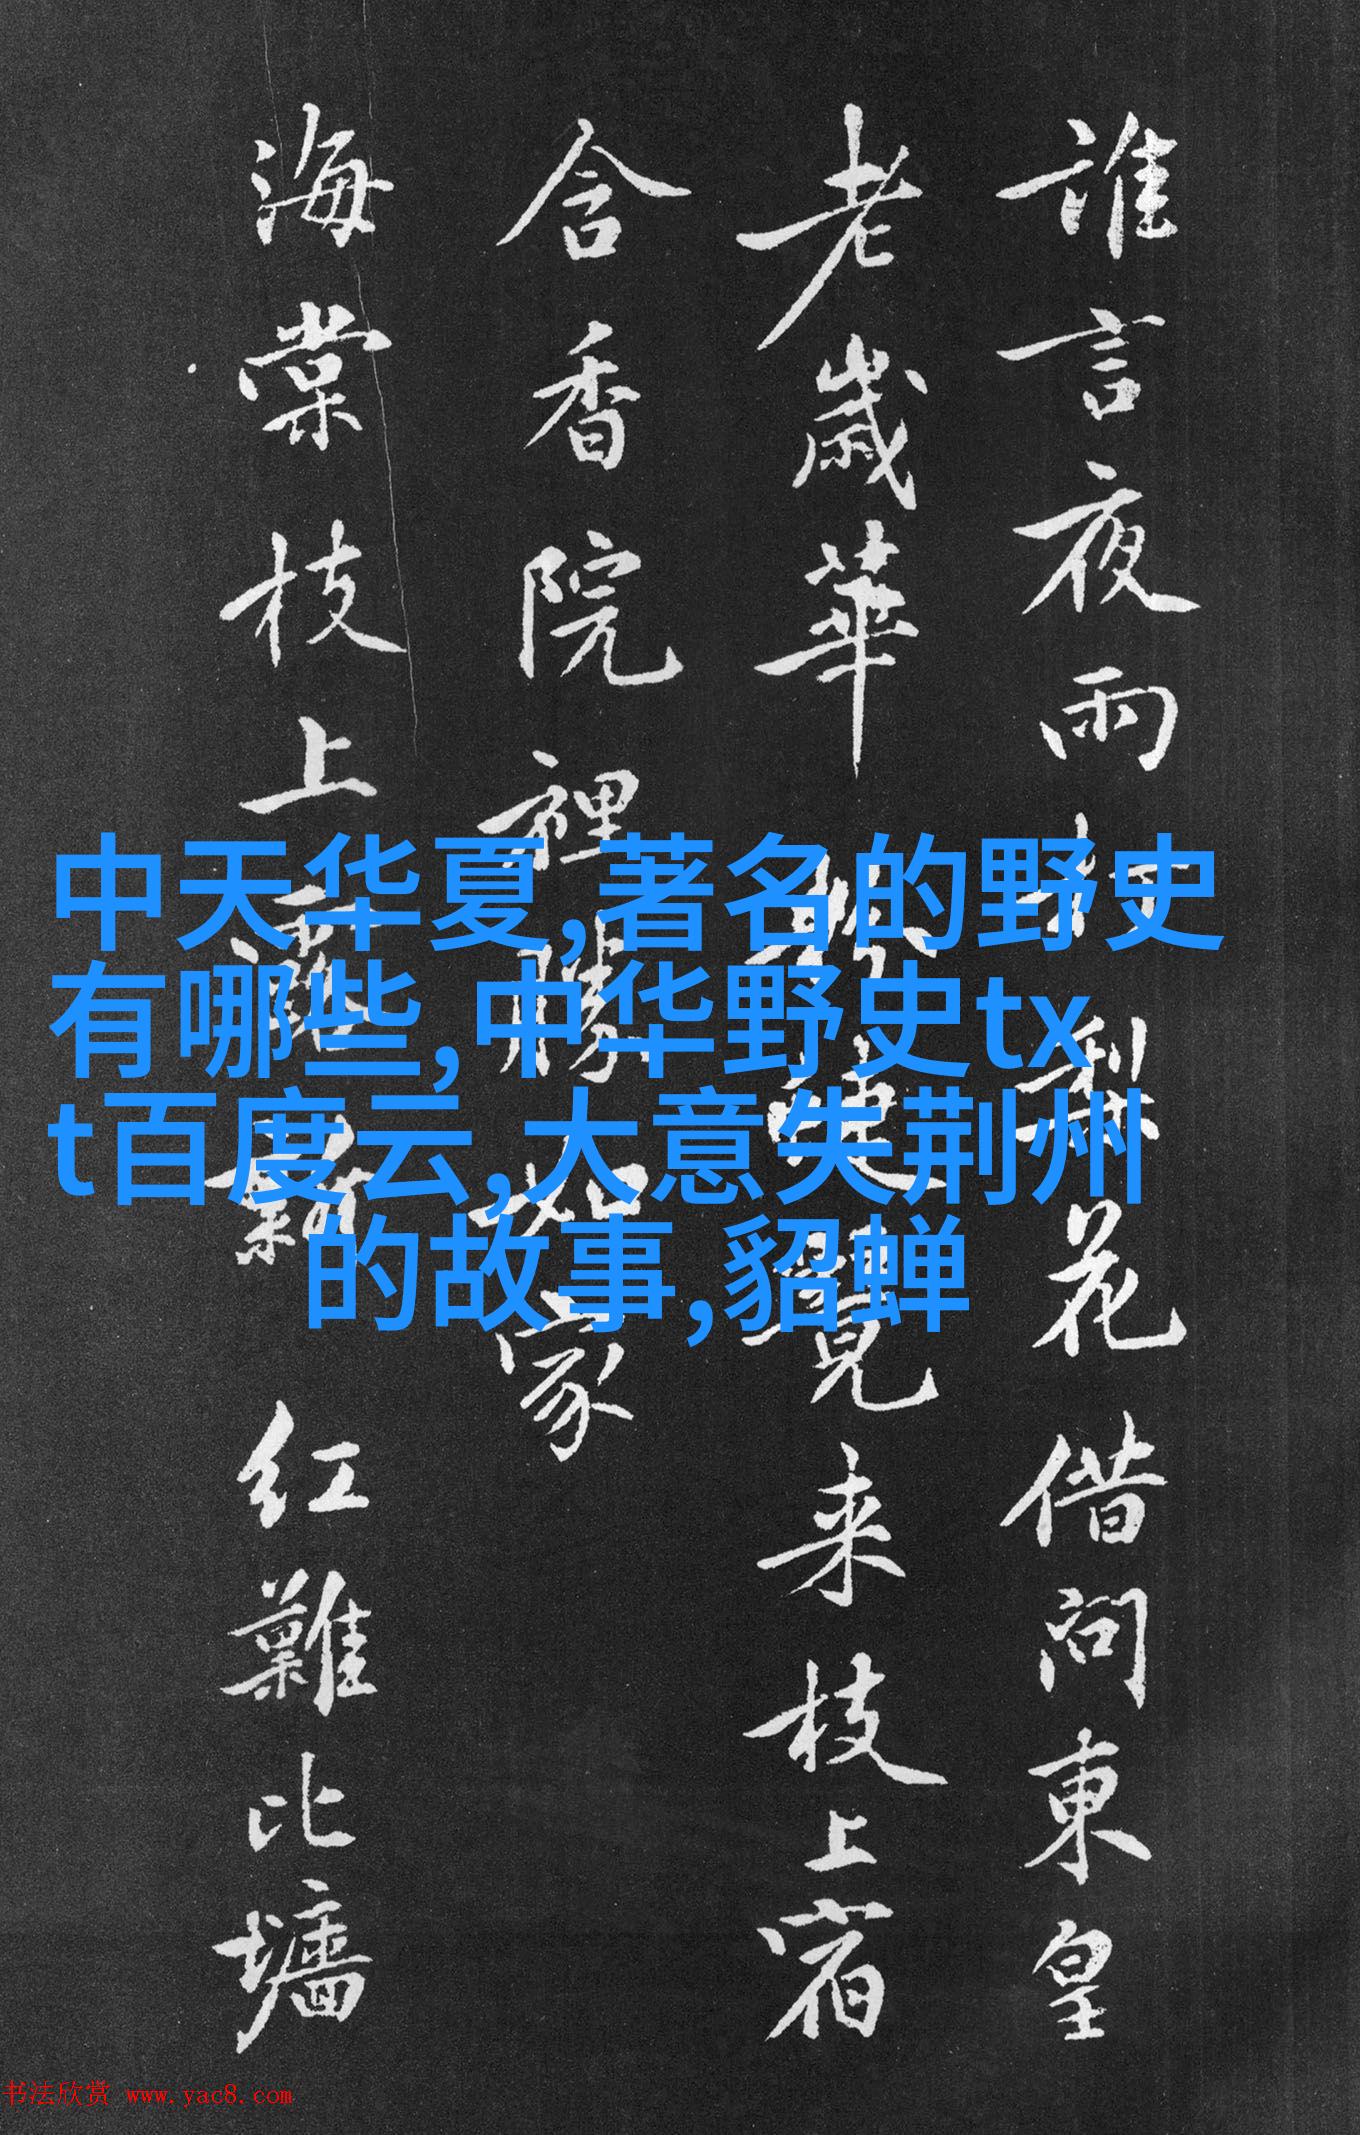 誰言夜雨打梨花借問東皇
老歲華 覽来枝上宿
含香院裡勝如家
海棠枝上露 新 红難比墻
中天华夏,著名的野史
有哪些,中华野史tx
t百度云,大意失荆州
的故事,貂蝉
书法欣赏 www.yac8.com